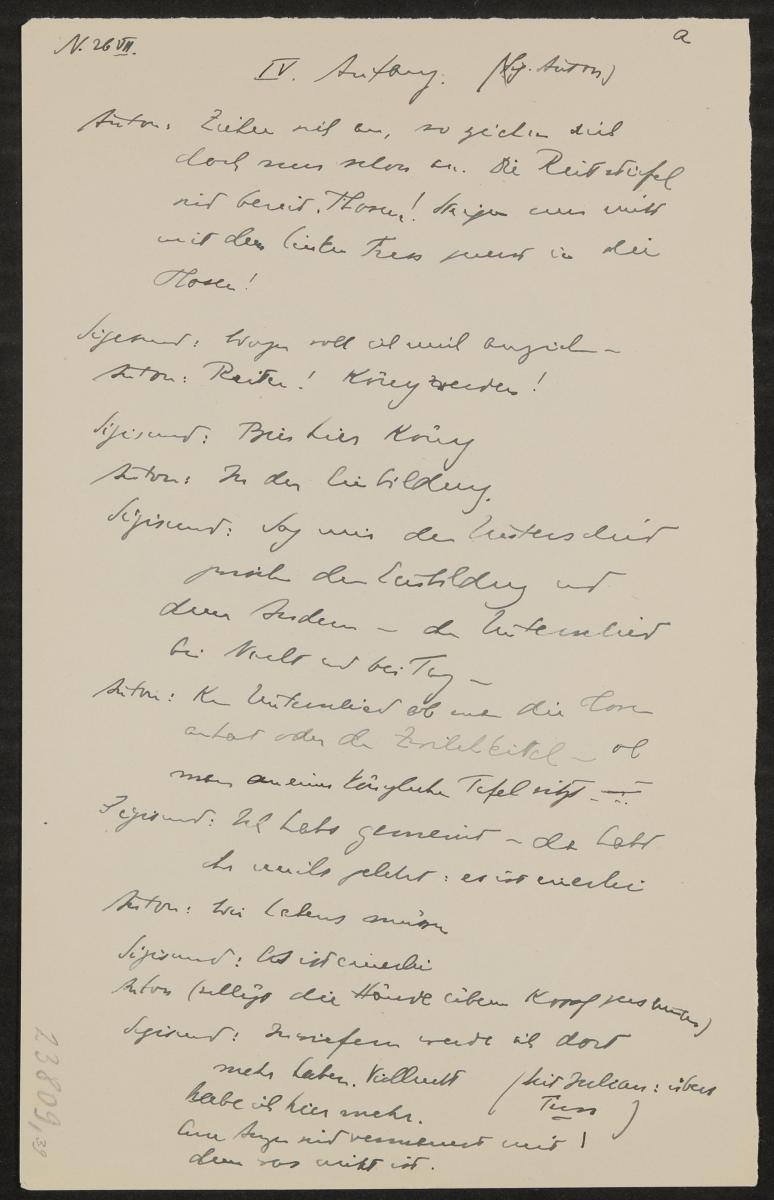 N. 26 VII.
a
IV. Anfang. (Sig. Anton)
Anton: Ziehen sich an, so ziehen sich
doch nun schon an. Die Reitstiefel
sind bereit. Hosen! Steigen nur nicht
mit dem linken Fuss zuerst in die
Hosen!
Sigismund: Wozu soll ich mich anziehn –
Anton: Reiten! König werden!
Sigismund: Bin hier König
Anton: In der Einbildung.
Sigismund: Sag mir den Unterschied
zwischen der Einbildung und
dem Andern – den Unterschied
bei Nacht und bei Tag –
Anton: Kein Unterschied ob man die Hosen
anhat oder den – ob
man an einer königlichen Tafel sitzt –
Sigismund: Ich habs gemeint – da habt
ihr michs gelehrt: es ist einerlei
Anton: Wir habens müssen
Sigismund: Es ist einerlei
Anton (schlägt die Hände überm Kopf zusammen)
Sigismund: Inwiefern werde ich dort
mehr haben. Vielleicht
habe ich hier mehr.
(mit Julian: übers
Tun)
Eure Augen sind vermauert mit
dem was nicht ist.
23809,39